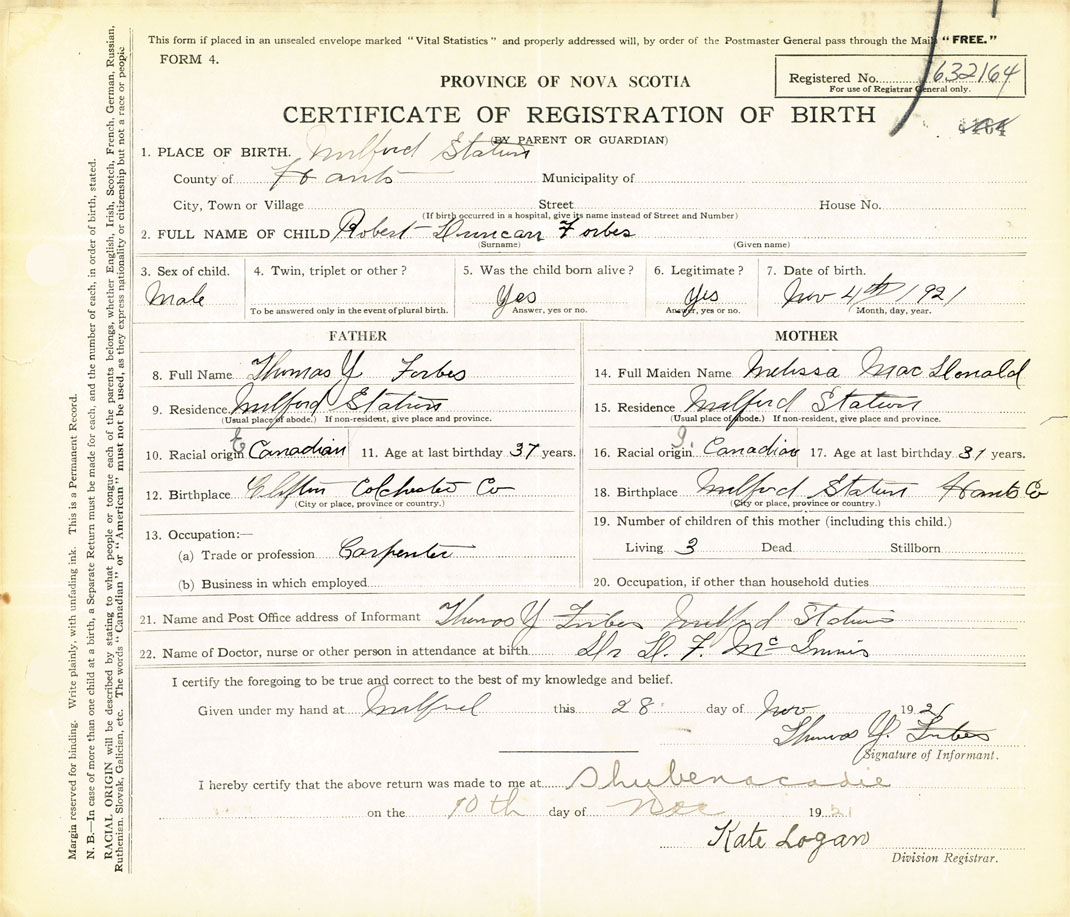 This form if placed in an unsealed envelope marked "Vital Statistics" and properly addressed will, by order of the Postmaster General pass through the Mail "FREE."
FORM 4.
Registered No. 632164
For use of Registrar General only.
PROVINCE OF NOVA SCOTIA
CERTIFICATE OF REGISTRATION OF BIRTH
(BY PARENT OR GUARDIAN)
1. PLACE OF BIRTH. Milford Station
County of Hants Municipality of
City, Town or Village Street House No.
(If birth occurred in a hospital, give its name instead of Street and Number)
2. FULL NAME OF CHILD Robert Duncan Forbes
(Surname) (Given name)
3. Sex of child. 4. Twin, triplet or other? 5. Was the child born alive? 6. Legitimate? 7. Date of birth.
Male Yes Yes Nov 4th 1921
To be answered only in the event of plural birth. Answer, yes or no. Answer, yes or no. (Month, day, year.)
FATHER
8. Full Name Thomas Y Forbes
9. Residence Milford Station
(Usual place of abode.) If non-resident, give place and province.
10. Racial origin Canadian 11. Age at last birthday 37 years.
12. Birthplace Clifton Colchester Co
(City or place, province or country.)
13. Occupation:—
(a) Trade or profession Carpenter
(b) Business in which employed
MOTHER
14. Full Maiden Name Melissa MacDonald
15. Residence Milford Station
(Usual place of abode.) If non-resident, give place and province.
16. Racial origin Canadian 17. Age at last birthday 31 years.
18. Birthplace Milford Station Hants Co
(City or place, province or country.)
19. Number of children of this mother (including this child.)
Living 3 Dead Stillborn
20. Occupation, if other than household duties
21. Name and Post Office address of Informant Thomas Y Forbes Milford Station
22. Name of Doctor, nurse or other person in attendance at birth Dr D. F. McInnis
I certify the foregoing to be true and correct to the best of my knowledge and belief.
Given under my hand at Milford this 28 day of Nov 1921
Thomas Y. Forbes
Signature of Informant.
I hereby certify that the above return was made to me at Shubenacadie
on the 10th day of Dec 1921
Kate Logan
Division Registrar.
Margin reserved for binding. Write plainly, with unfading ink. This is a Permanent Record.
N. B.—In case of more than one child at a birth, a Separate Return must be made for each, and the number of each, in order of birth, stated.
RACIAL ORIGIN will be described by stating to what people or tongue each of the parents belongs, whether English, Irish, Scotch, French, German, Russian,
Ruthenian, Slovak, Galician, etc. The words "Canadian" or "American" must not be used, as they express nationality or citizenship but not a race or people